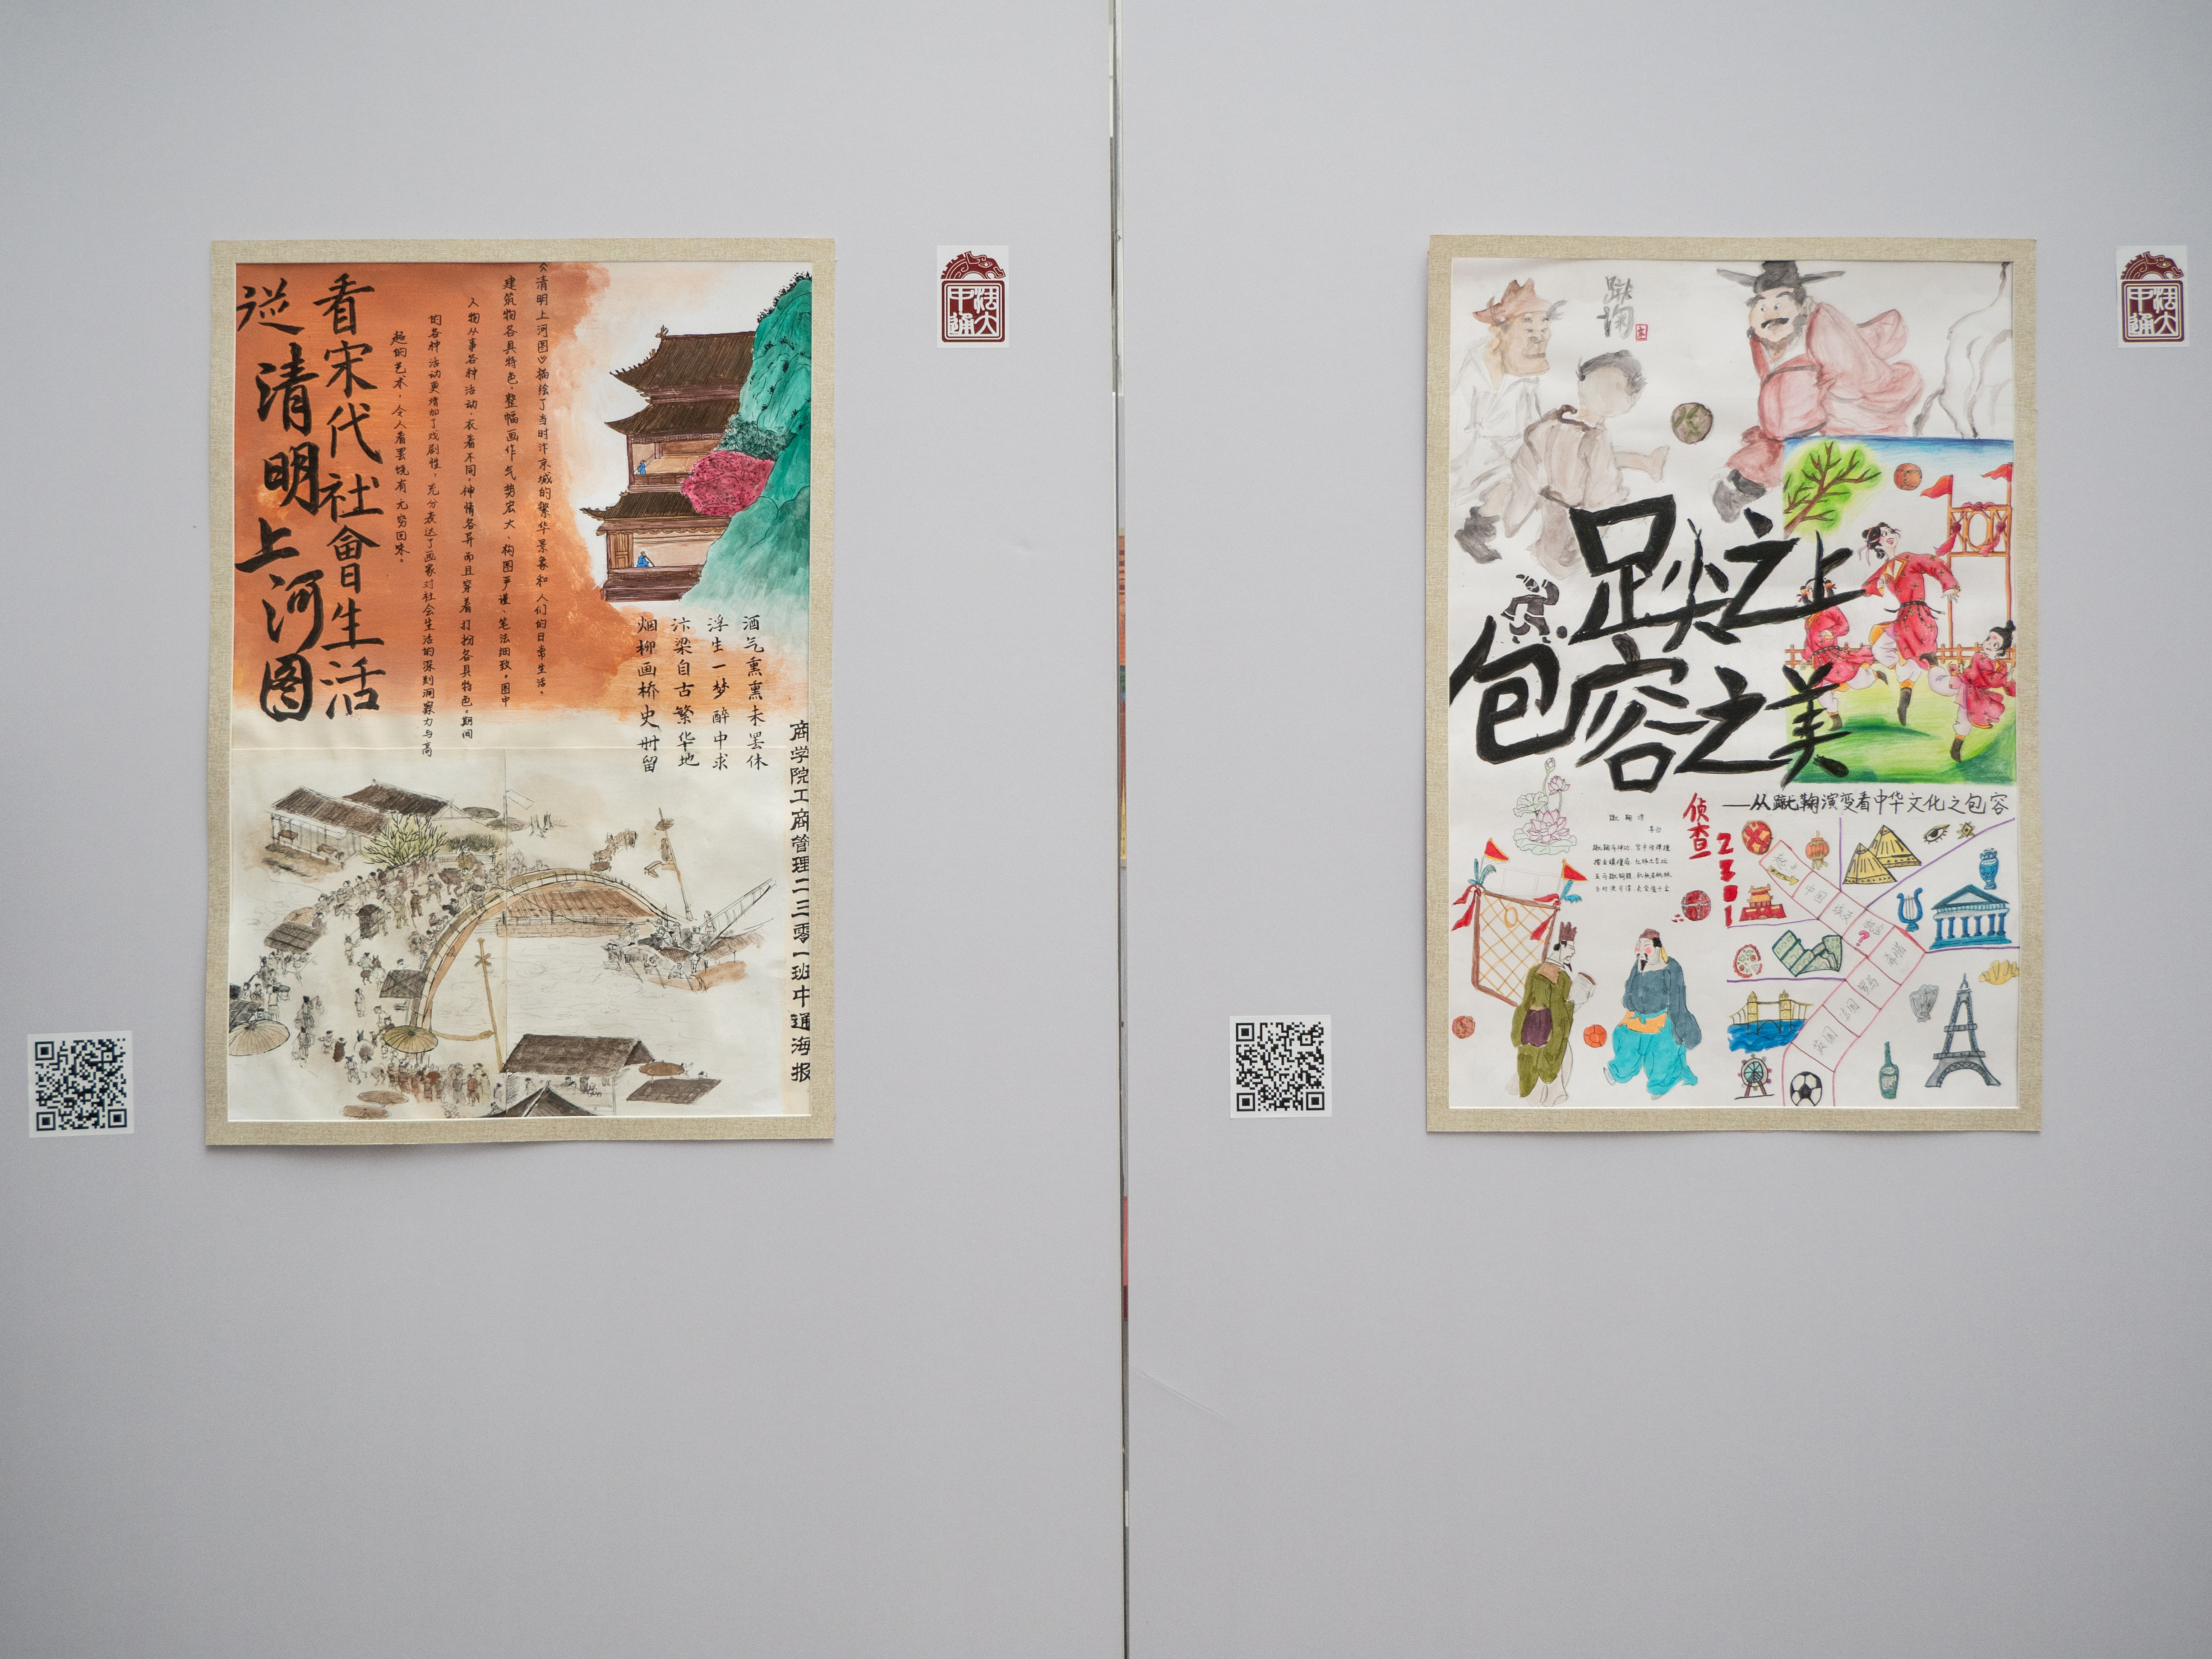 從清明上河图
看宋代社會日生活
《清明上河图》描绘了当时汴京城的繁华景象和人们的日常生活。
建筑物各具特色，整幅画作气势宏大、构图严谨、笔法细致。图中
人物从事各种活动，衣着不同，神情各异而且穿着打扮各具特色。期间
的各种活动更增加了戏剧性，充分表达了画家对社会生活的深刻洞察力与高
超的艺术，令人看罢饶有无穷回味。
酒气熏熏未罢休
浮生一梦醉中求
汴梁自古繁华地
烟柳画桥史册留
商学院工商管理二三零一班中通海报
中通
法大
蹴鞠
足尖之上
包容之美
——从蹴鞠演变看中华文化之包容
侦查2301
蹴鞠
李白
起点
中国
埃及
希腊
罗马
法国
英国
中通
法大